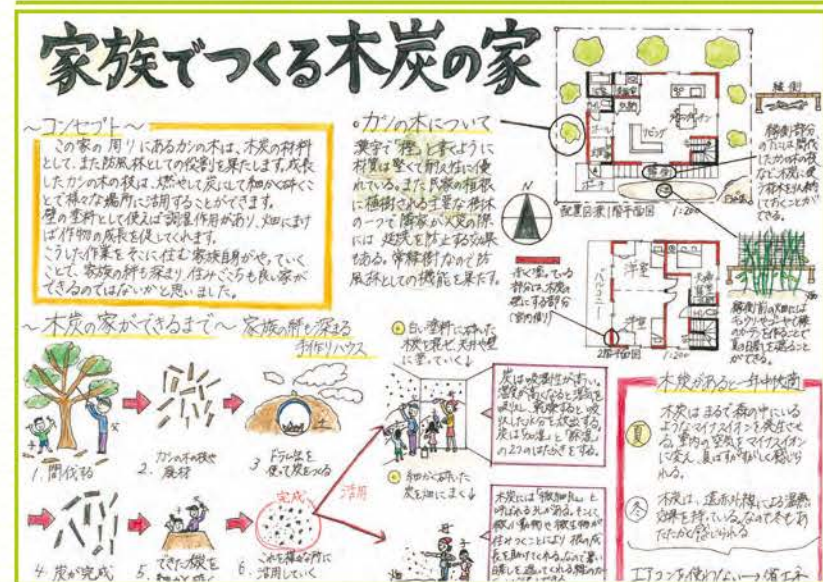 家族でつくる木炭の家
～コンセプト～
この家の周りにあるカシの木は、木炭の材料
として、また防風林としての役割を果たします。成長
したカシの木の枝は、燃やして炭にして細かく砕くこ
とで様々な場所に活用することができます。
壁の塗料として使えば調湿作用があり、畑にまけ
ば作物の成長を促してくれます。
こうした作業をそこに住む家族自身がやっていく
ことで、家族の絆も深まり住みごこちも良い家が
できるのではないかと思いました。
カシの木について
漢字で「樫」と書くように
材質は堅くて耐久性に優
れている。また民家の垣根
に植樹される主要な樹木
の一つで隣家が火災の際
には延焼を防止する効果
もある。常緑樹なので防
風林としての機能を果たす。
リビング
ポーチ
配置図兼1階平面図 1:200
縁側
縁側部分
の下には間伐
したカシの木の枝
など、木炭に使
う枝木を収納
しておくことが
できる。
赤く塗っている
部分は、木炭の
壁にする部分
(室内側)
バルコニー
洋室
洋室
2階平面図 1:200
縁側前の畑には
を作ることで
夏の日差しを遮ること
ができる。
～木炭の家ができるまで～ 家族の絆も深まる
手作りハウス
1. 間伐する
2. カシの木の枝や
廃材
3. ドラム缶を
使って炭をつくる
土
4. 炭が完成
5. できた炭を
細かく砕く
完成
6. これを様々な所に
活用していく
活用
白い塗料に砕いた
木炭を混ぜ、天井や壁
に塗っていく↓
炭は吸湿性が高い。
湿度が高くなると湿気を
吸収し、乾燥すると吸
収した水分を放出する。
炭は「吸湿」と「解湿」
の2つのはたらきをする。
細かく砕いた
炭を畑にまく↓
畑
木炭には「微細孔」と
呼ばれる孔がある。そこに
微小動物や微生物が
住みつくことにより根の成
長を助けてくれる。なので暑い
日差しを遮ってくれる緑のカ
木炭があると一年中快適
夏
木炭はまるで森の中にいる
ようなマイナスイオンを発生させ
る。室内の空気をマイナスイオン
に変え、夏はすがすがしく感じら
れる。
冬
木炭は、遠赤外線による温熱
効果を持っている。なので冬もあ
たたかく感じられる
エアコンを使わない→省エネ